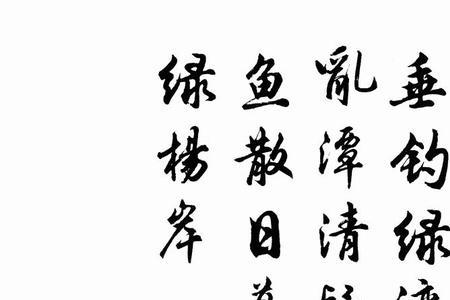 垂钓绿
亂潭清
鱼散日
绿楊岸